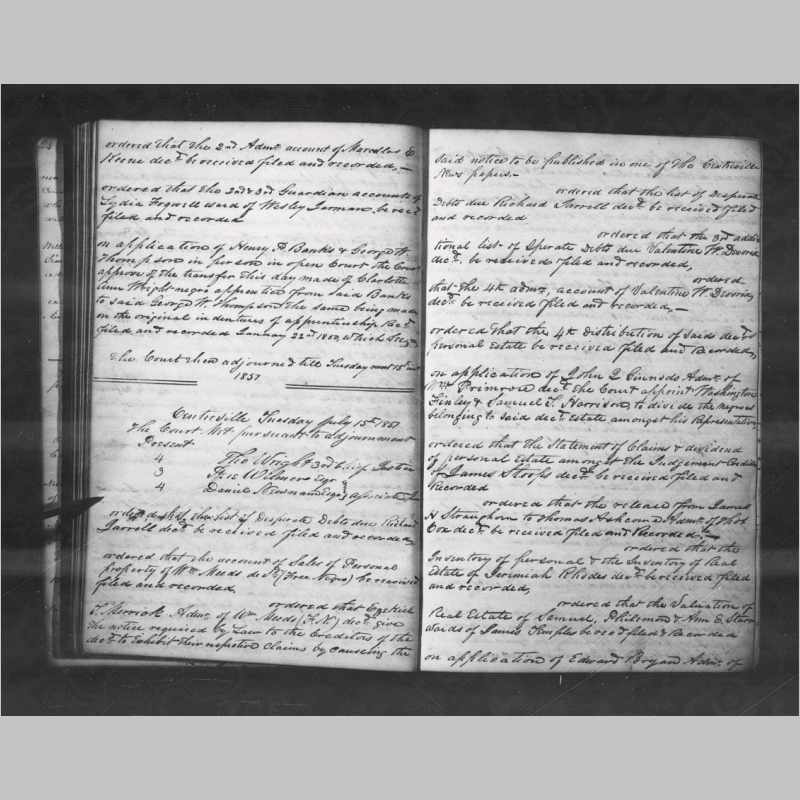 ordered that the 2nd Admrs account of Marcellus E
Keene decd be received filed and recorded,
ordered that the 2d & 3rd Guardian accounts of
Lydia ward of Wesley Jarman be recd
filed and recorded
on application of Henry A Banks & George W.
Thompson in person in open Court the Court
approve of the transfer this day made of Charlotte
Ann Wright negro apprentice from said Banks
to said George W. Thompson the same being made
on the original indentures of apprenticeship Recd
filed and recorded January 22d which
The Court then adjourned till Tuesday next 15th inst
1851
Centreville Tuesday July 15th 1851
The Court Met pursuant to adjournment
Present
4 Tho Wright 3rd Chief Justice
3 Wilmer Esqr
4 Daniel Newnam Esqr associate
ordered that the list of Desperate Debts due Richard
Jarrell decd be received filed and recorded,
ordered that the account of Sales of Personal
property of Wm Meeds decd (Free Negro) be received
filed and recorded,
ordered that Ezekiel
T. Merrick Admr of Wm Meeds (F.N.) decd give
the notice required by Law to the Creditors of the
decd to Exhibit their respective Claims by causing the
said notice to be published in one of the Centreville
News papers.-
ordered that the list of Desperate
Debts due Richard Jarrell decd be received filed
and recorded
ordered that the 3rd addi
tional list of Sperate Debts due Valentine W.
decd be received filed and recorded,
ordered
that the 4th admrs account of Valentine W.
decd be received filed and recorded,
ordered that the 4th Distribution of said decd
personal Estate be received filed and Recorded,
on application of John Q Admr of
Wm Primrose decd the Court appoint Washington
Finley & Samuel T. Harrison to divide the negroes
belonging to said decd Estate amongst his Representatives
ordered that the Statement of Claims & dividend
of personal Estate amongst the Judgement Creditors
of James decd be received filed and
Recorded
ordered that the release from James
H Straughorn to Thomas Ashcom Admr of
Cox decd be received filed and Recorded,
ordered that the
Inventory of personal & the Inventory of Real
Estate of Jeremiah Rhodes decd be received filed
and recorded,
ordered that the Valuation of
Real Estate of Samuel, Philemon & Ann E
wards of James Temple be recd filed & Recorded
on application of Edward Bryan Admr of